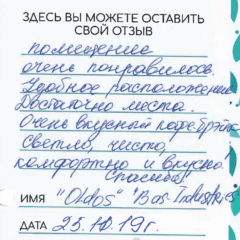 ЗДЕСЬ ВЫ МОЖЕТЕ ОСТАВИТЬ
СВОЙ ОТЗЫВ
помещение
очень понравилось.
Удобное расположение
Достаточно места.
Очень вкусный кофе брейк
светло, чисто,
комфортно и вкусно!
Спасибо!
ИМЯ "Oldos" "Bas Industries
ДАТА 25.10.19г.